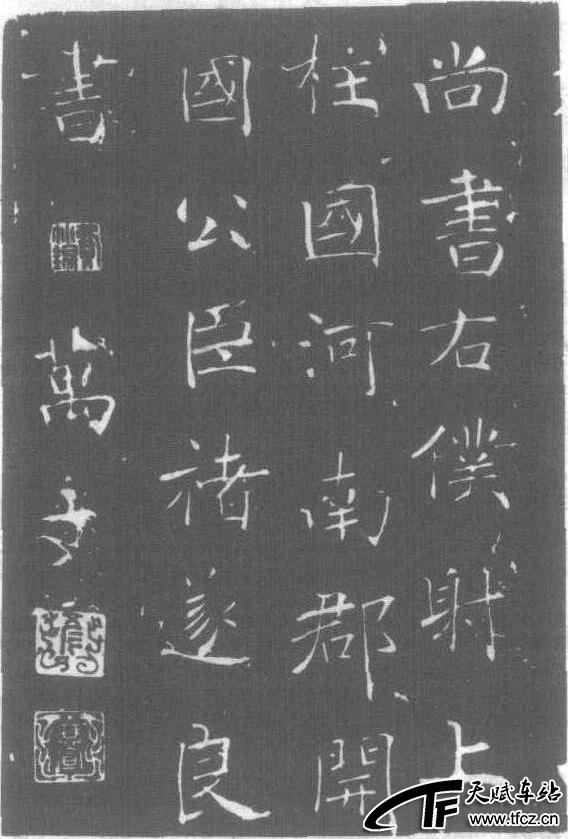 尚書右僕射上
柱國河南郡開
國公臣褚遂良
書
萬
天赋车站
www.tfcz.cn